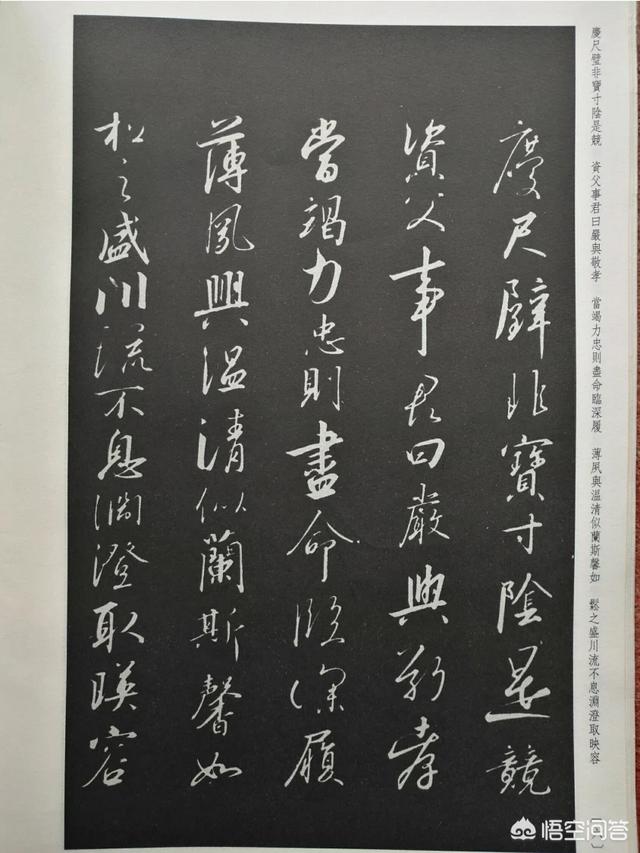 慶尺璧非寶寸陰是競　資父事君曰嚴與敬孝　當竭力忠則盡命臨深履　薄夙興溫清似蘭斯馨如　鬆之盛川流不息淵澄取映容
慶尺璧非寶寸陰是競
資父事君曰嚴與敬孝
當竭力忠則盡命臨深履
薄夙興溫清似蘭斯馨如
松之盛川流不息淵澄取暎容
悟空问答